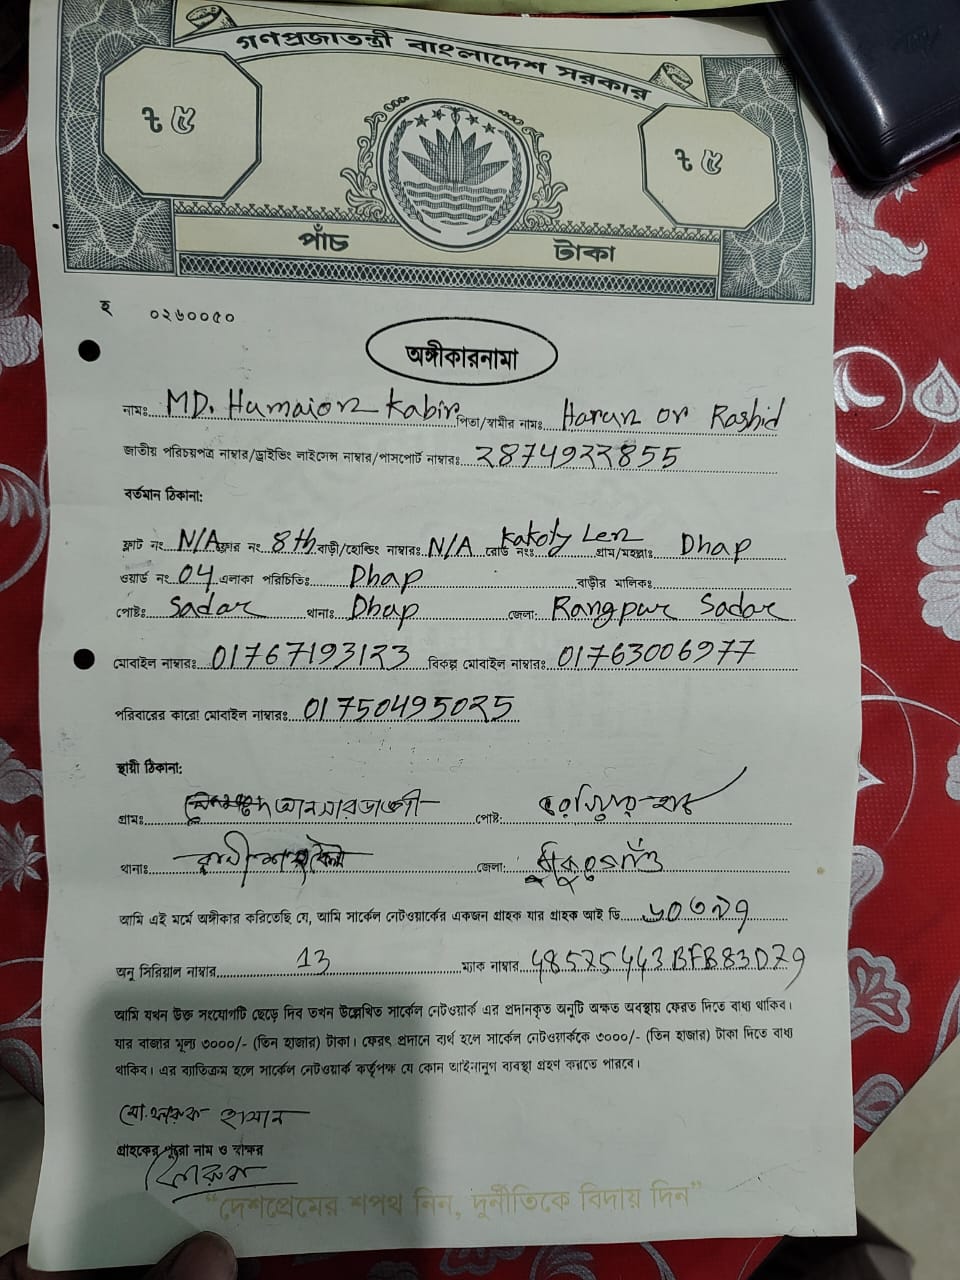 গণপ্রজাতন্ত্রী বাংলাদেশ সরকার
৳ ৫ ৳ ৫
পাঁচ টাকা
হ ০২৬০০৫০
অঙ্গীকারনামা
নামঃ MD. Humaion Kabir পিতা/স্বামীর নামঃ Harun or Rashid
জাতীয় পরিচয়পত্র নাম্বার/ড্রাইভিং লাইসেন্স নাম্বার/পাসপোর্ট নাম্বারঃ 2874922855
বর্তমান ঠিকানা:
ফ্লাট নং N/A ফ্লোর নং 8th বাড়ী/হোল্ডিং নাম্বারঃ N/A রোড নংঃ Kakoly Len গ্রাম/মহল্লাঃ Dhap
ওয়ার্ড নং 04 এলাকা পরিচিতিঃ Dhap বাড়ীর মালিকঃ
পোষ্টঃ Sadar থানাঃ Dhap জেলা: Rangpur Sadar
মোবাইল নাম্বারঃ 01767193123 বিকল্প মোবাইল নাম্বারঃ 01763006977
পরিবারের কারো মোবাইল নাম্বারঃ 01750495025
স্থায়ী ঠিকানা:
গ্রামঃ আনসারডাঙ্গী পোষ্ট:
থানাঃ জেলা: ঠাকুরগাঁও
আমি এই মর্মে অঙ্গীকার করিতেছি যে, আমি সার্কেল নেটওয়ার্কের একজন গ্রাহক যার গ্রাহক আই ডি
অনু সিরিয়াল নাম্বার 13 ম্যাক নাম্বার 48575443BFB83D79
আমি যখন উক্ত সংযোগটি ছেড়ে দিব তখন উল্লেখিত সার্কেল নেটওয়ার্ক এর প্রদানকৃত অনুটি অক্ষত অবস্থায় ফেরত দিতে বাধ্য থাকিব।
যার বাজার মূল্য ৩০০০/- (তিন হাজার) টাকা। ফেরৎ প্রদানে ব্যর্থ হলে সার্কেল নেটওয়ার্ককে ৩০০০/- (তিন হাজার) টাকা দিতে বাধ্য
থাকিব। এর ব্যতিক্রম হলে সার্কেল নেটওয়ার্ক কর্তৃপক্ষ যে কোন আইনানুগ ব্যবস্থা গ্রহণ করতে পারবে।
মো. ফারুক হাসান
গ্রাহকের পুরো নাম ও স্বাক্ষর
“দেশপ্রেমের শপথ নিন, দুর্নীতিকে বিদায় দিন”